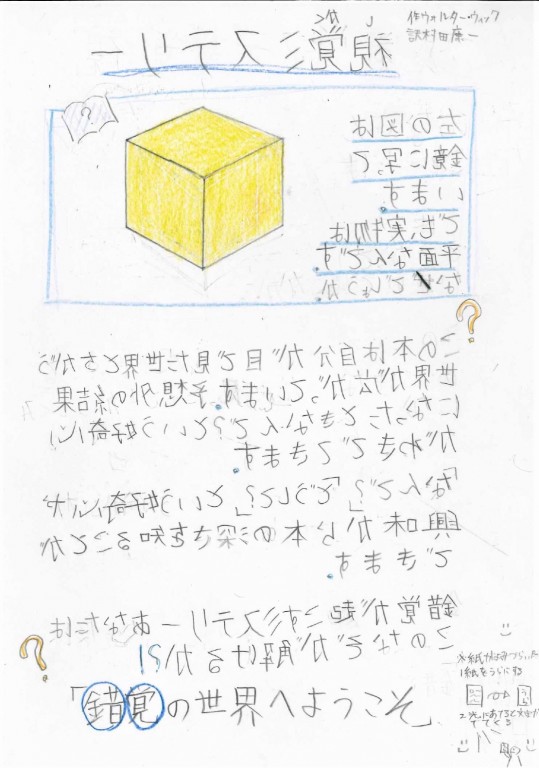 作ウォルター・ウィック
訳村田康一
視覚ミステリー
?
左の図は
鏡に写って
います。
でも、実物は
平面なんです。
なぜでしょうか。
?
この本は自分が目で見た世界とちがう
世界が広がっています。予想外の結果
になったときなんで?という好奇心
がわきでてきます。
「なんで?」「どうして?」という好奇心や
興味から本の深さを知ることが
できます。
錯覚が起こすミステリーあなたは
このなぞが解けるか?!
?
「錯覚の世界へようこそ」
1紙をうらにする
2.光にあてると文字が
でてくる